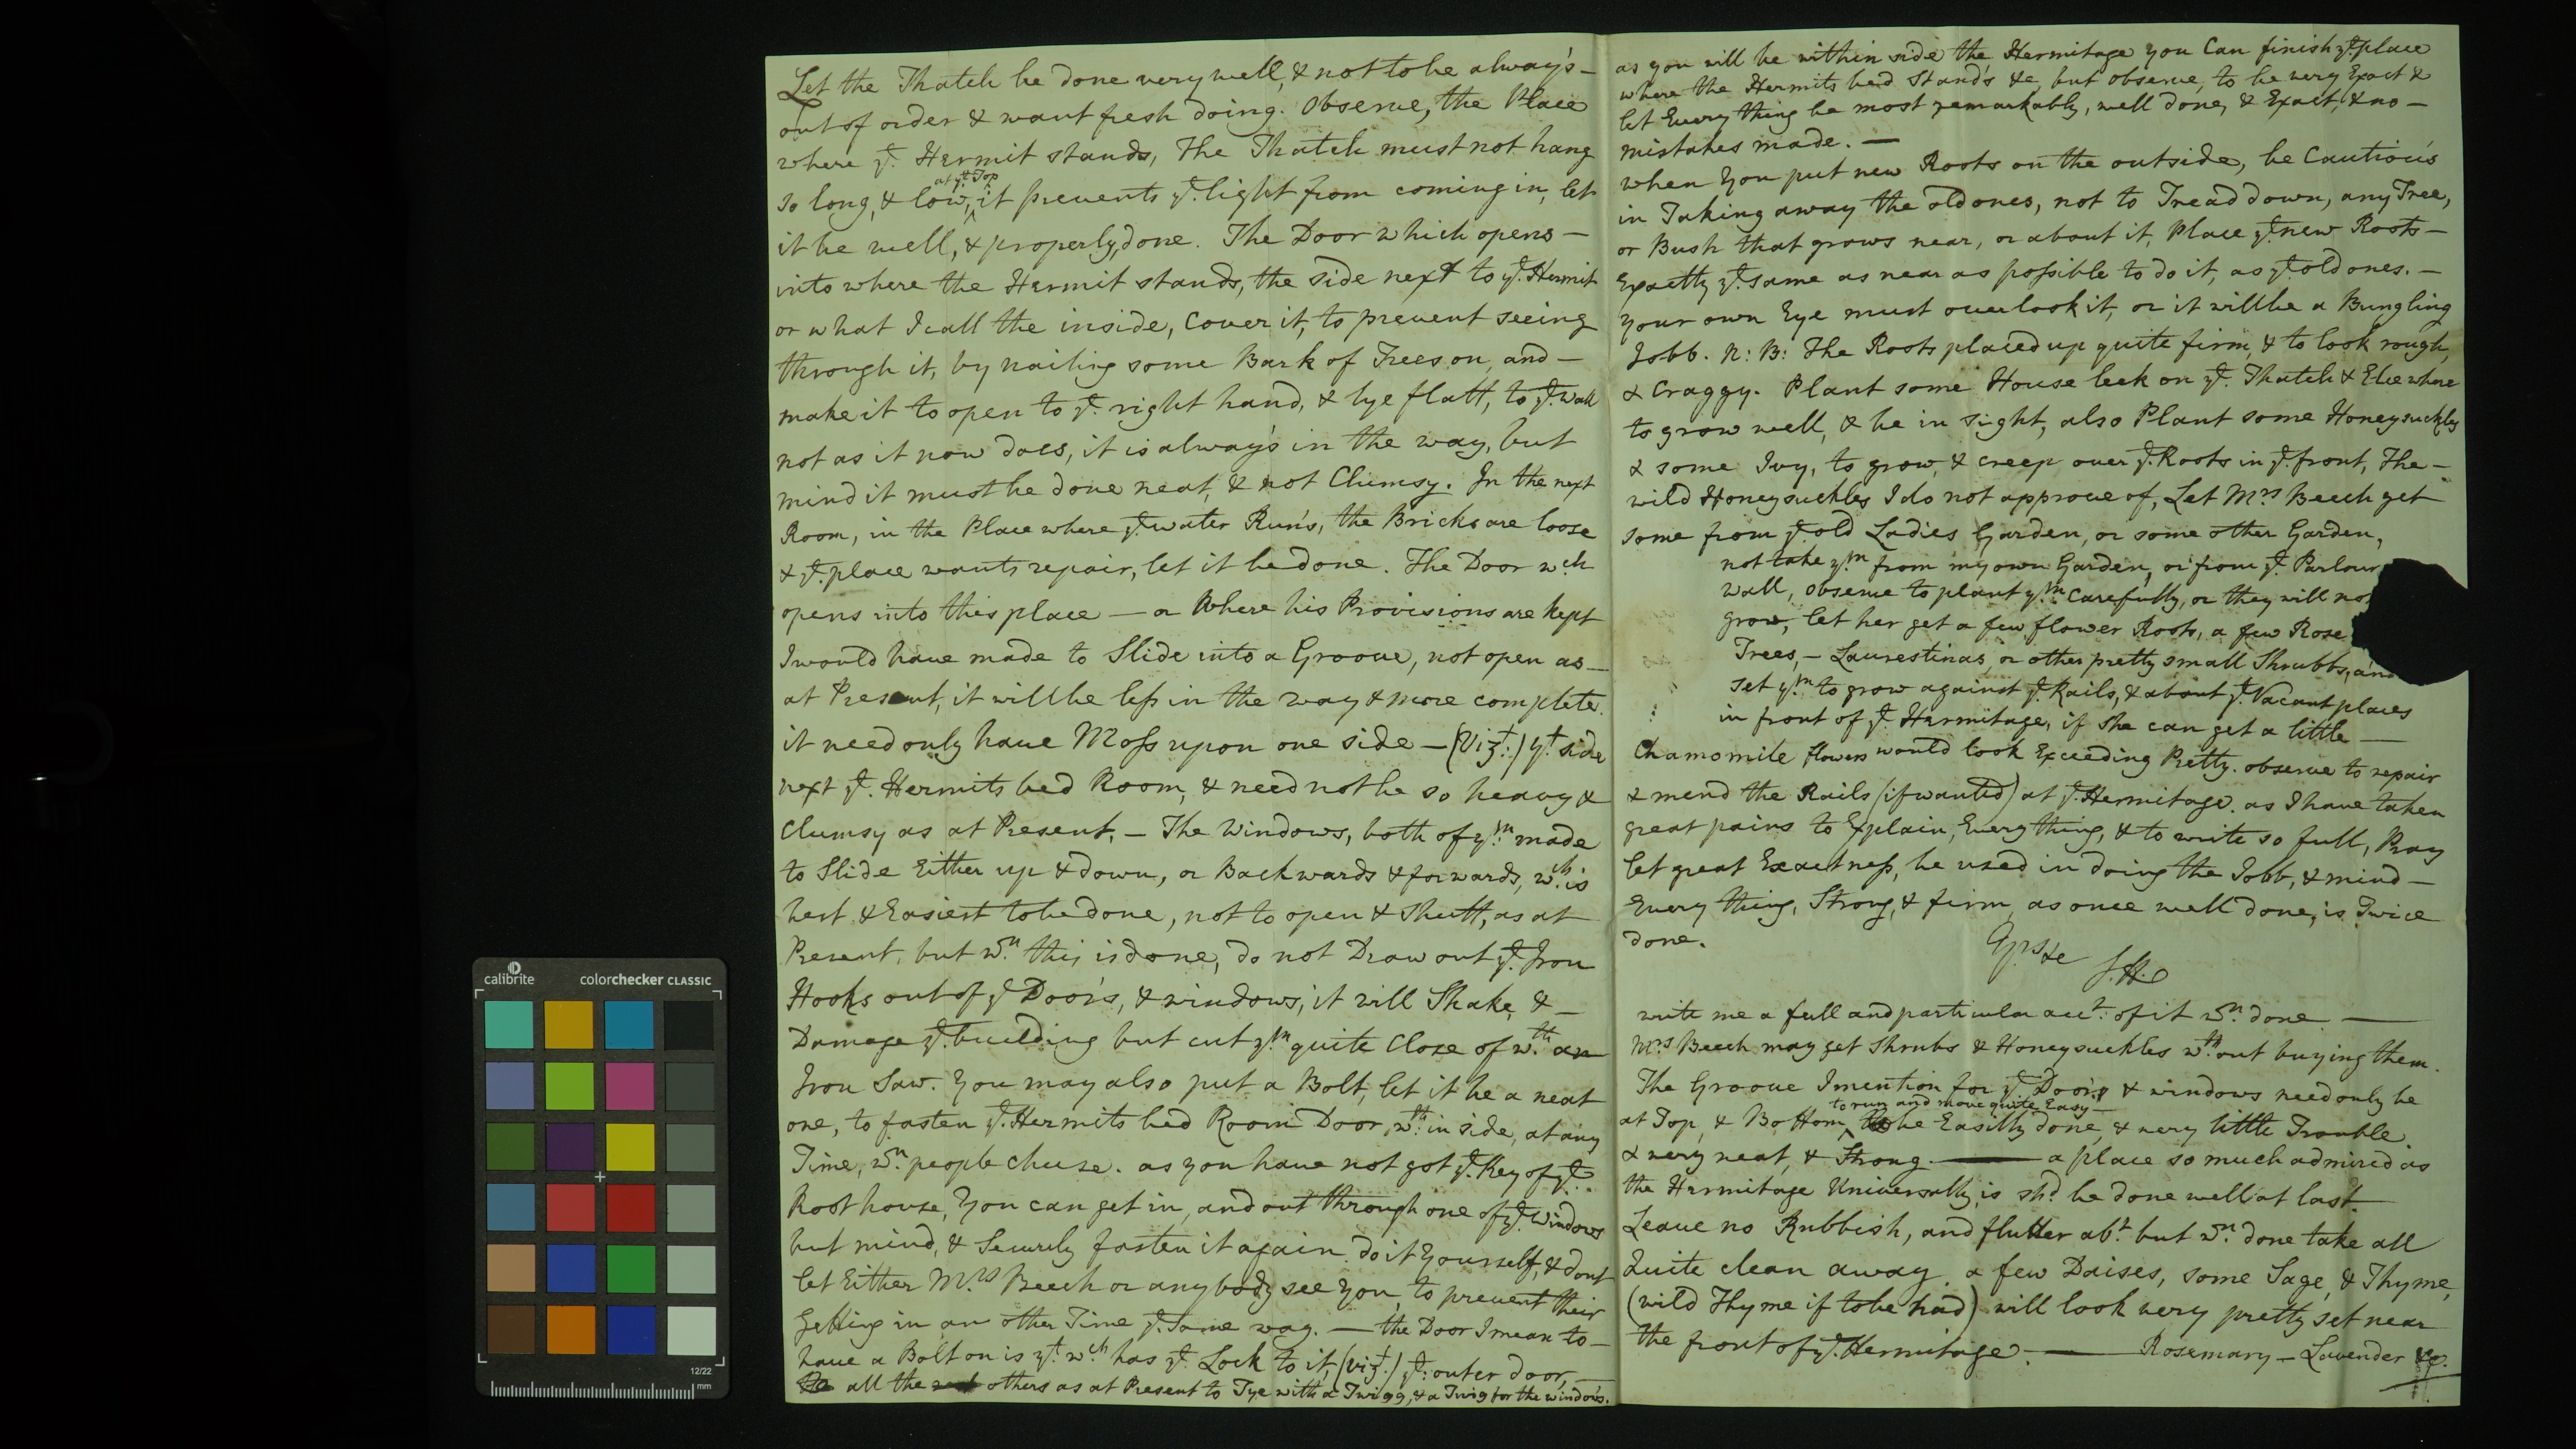 Let the Thatch be done very well, & not to be alway's –
out of order & want fresh doing. Observe, the Place
where ye. Hermit stands, The Thatch must not hang
at ye. Top
so long, & low, it prevents ye. light from coming in, let
it be well, & properly, done. The Door which opens –
into where the Hermit stands, the side next to ye. Hermit
or what I call the inside, Cover it, to prevent seeing
through it, by nailing some Bark of Trees on, and –
make it to open to ye. right hand, & lye flatt, to ye. Wall
not as it now does, it is alway's in the way, but
mind it must be done neat, & not Clumsy. In the next
Room, in the Place where ye. water Run's, the Bricks are loose
& ye. place wants repair, let it be done. The Door wch
opens into this place – or Where his Provisions are kept
I would have made to Slide into a Groove, not open as –
at Present, it will be less in the way & more complete.
it need only have Moss upon one side – (Vizt:) yt. side
next ye. Hermits bed Room, & need not be so heavy &
Clumsy as at Present, – The Windows, both of ym. made
to Slide Either up & down, or Backwards & forwards, wch. is
best & Easiest to be done, not to open & Shutt, as at
Present, but wn. this is done, do not Draw out ye. Iron
Hooks out of ye Door's, & windows, it will Shake, & –
Damage ye. building but cut ym. quite Close of wth. an
Iron Saw. You may also put a Bolt, let it be a neat
one, to fasten ye. Hermits bed Room Door, wth. in side, at any
Time, wn. people chuse. as you have not got ye. Key of ye.
Root house, You can get in, and out through one of ye. Windows
but mind, & Securely fasten it again. do it Yourself, & dont
let Either Mrs Beech or any body see You, to prevent their
Getting in an other Time ye. Same way. – the Door I mean to –
have a Bolt on is yt. wch has ye. Lock to it, (vizt:) ye: outer door, –
all the others as at Present to Tye with a Twigg, & a Twig for the window's.
as you will be within side the Hermitage you Can finish ye. place
where the Hermits bed Stand's &c, but observe, to be very Exact &
let Every thing be most remarkably, well done, & Exact, & no –
mistakes made. –
when You put new Roots on the outside, be Cautious
in Taking away the old ones, not to Tread down, any Tree,
or Bush that grows near, or about it, Place ye. new Roots –
Exactly ye. same as near as possible to do it, as ye. old ones. –
Your own Eye must overlook it, or it will be a Bungling
Jobb. N: B: The Roots placed up quite firm, & to look rough,
& Craggy. Plant some House leek on ye. Thatch & Elsewhere
to grow well, & be in sight, also Plant some Honeysuckles
& some Ivy, to grow, & creep over ye. Roots in ye. front, The –
wild Honeysuckles I do not approve of, Let Mrs Beech get
some from ye. old Ladies Garden, or some other Garden,
not take ym from my own Garden, or from ye. Parlour
Wall, observe to plant ym. Carefully, or they will not
grow, let her get a few flower Roots, a few Rose
Trees, – Laurestinas, or other pretty small Shrubbs, and
set ym. to grow against ye. Rails, & about ye. Vacant places
in front of ye. Hermitage, if she can get a little –
Chamomile flowers would look Exceeding Pretty. observe to repair
& mend the Rails (if wanted) at ye. Hermitage. as I have taken
great pains to Explain, Every thing, & to write so full, Pray
let great Exactness, be used in doing the Jobb, & mind –
Every thing, Strong, & firm, as once well done, is Twice
done.
Yrs &c
J.H.
write me a full and particular acct. of it wn. done. –
Mrs Beech may get Shrubs & Honeysuckles wth. out buying them.
The Groove I mention for ye. Door's & windows need only be
to run and move quite Easy –
at Top, & Bottom, be Easilly done, & very little Trouble.
& very neat, & Strong. – a place so much admired as
the Hermitage Universally, is shd. be done well at last.
Leave no Rubbish, and flutter abt. but wn. done take all
Quite clean away. a few Daises, some Sage, & Thyme,
(wild Thyme if to be had) will look very pretty set near
the front of ye. Hermitage. – Rosemary – Lavender &c.
calibrite
colorchecker CLASSIC
12/22
mm